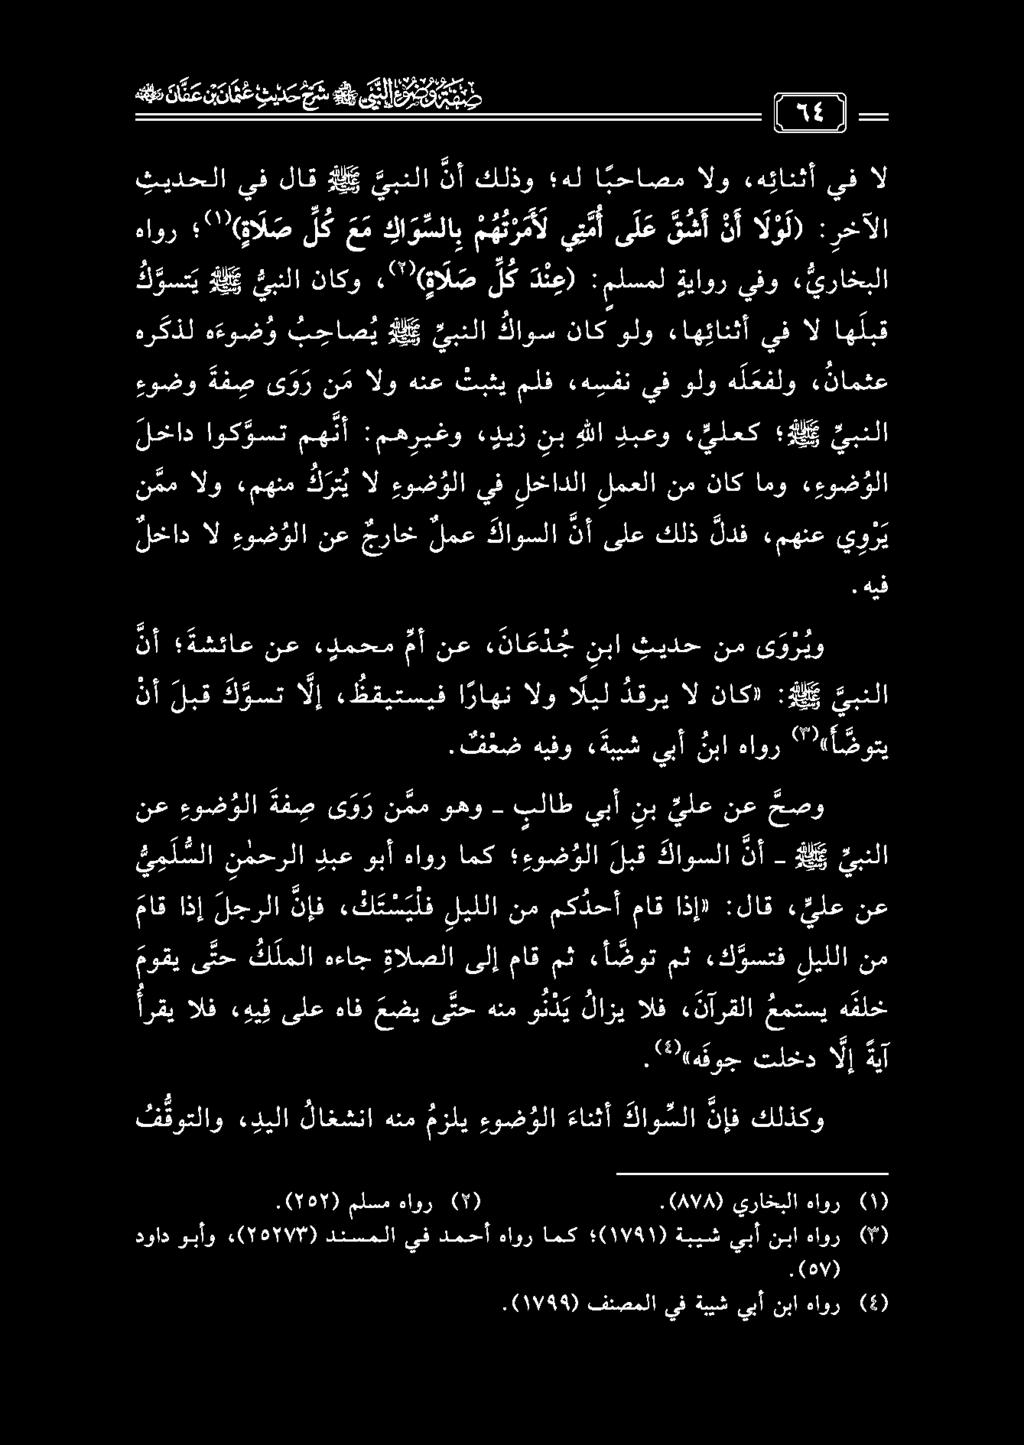 صفة وضوء النبي ﷺ شرح حديث عثمان بن عفان رضي الله عنه
٦٤
لا في أثنائِه، ولا مصاحبًا له؛ وذلك أنَّ النبيَّ ﷺ قال في الحديثِ
الآخرِ: (لَوْلَا أَنْ أَشُقَّ عَلَى أُمَّتِي لَأَمَرْتُهُمْ بِالسِّوَاكِ مَعَ كُلِّ صَلَاةٍ)(١)؛ رواه
البخاريُّ، وفي روايةٍ لمسلمٍ: (عِنْدَ كُلِّ صَلَاةٍ)(٢)، وكان النبيُّ ﷺ يَتسوَّكُ
قبلَها لا في أثنائِها، ولو كان سواكُ النبيِّ ﷺ يُصاحِبُ وُضوءَه لذكَره
عثمانُ، ولفعَلَه ولو في نفسِه، فلم يثبتْ عنه ولا مَن رَوَى صِفةَ وضوءِ
النبيِّ ﷺ؛ كعليٍّ، وعبدِ اللهِ بنِ زيدٍ، وغيرِهم: أنَّهم تسوَّكوا داخلَ
الوُضوءِ، وما كان من العملِ الداخلِ في الوُضوءِ لا يُترَكُ منهم، ولا ممَّن
يَرْوِي عنهم، فدلَّ ذلك على أنَّ السواكَ عملٌ خارجٌ عن الوُضوءِ لا داخلٌ
فيه.
ويُرْوَى من حديثِ ابنِ جُدْعَانَ، عن أمِّ محمدٍ، عن عائشةَ؛ أنَّ
النبيَّ ﷺ: «كان لا يرقدُ ليلًا ولا نهارًا فيستيقظُ، إلَّا تسوَّكَ قبلَ أنْ
يتوضَّأَ»(٣) رواه ابنُ أبي شيبةَ، وفيه ضعْفٌ.
وصحَّ عن عليِّ بنِ أبي طالبٍ ـ وهو ممَّن رَوَى صِفةَ الوُضوءِ عن
النبيِّ ﷺ ـ أنَّ السواكَ قبلَ الوُضوءِ؛ كما رواه أبو عبدِ الرحمٰنِ السُّلَمِيُّ
عن عليٍّ، قال: «إذا قام أحدُكم من الليلِ فلْيَسْتَكْ، فإنَّ الرجلَ إذا قامَ
من الليلِ فتسوَّك، ثم توضَّأ، ثم قام إلى الصلاةِ جاءه الملَكُ حتَّى يقومَ
خلفَه يستمعُ القرآنَ، فلا يزالُ يَدْنُو منه حتَّى يضعَ فاه على فِيهِ، فلا يقرأُ
آيةً إلَّا دخلت جوفَه»(٤).
وكذلك فإنَّ السِّواكَ أثناءَ الوُضوءِ يلزمُ منه انشغالُ اليدِ، والتوقُّفُ
(١) رواه البخاري (٨٧٨). (٢) رواه مسلم (٢٥٢).
(٣) رواه ابن أبي شيبة (١٧٩١)؛ كما رواه أحمد في المسند (٢٥٢٧٣)، وأبو داود
(٥٧).
(٤) رواه ابن أبي شيبة في المصنف (١٧٩٩).